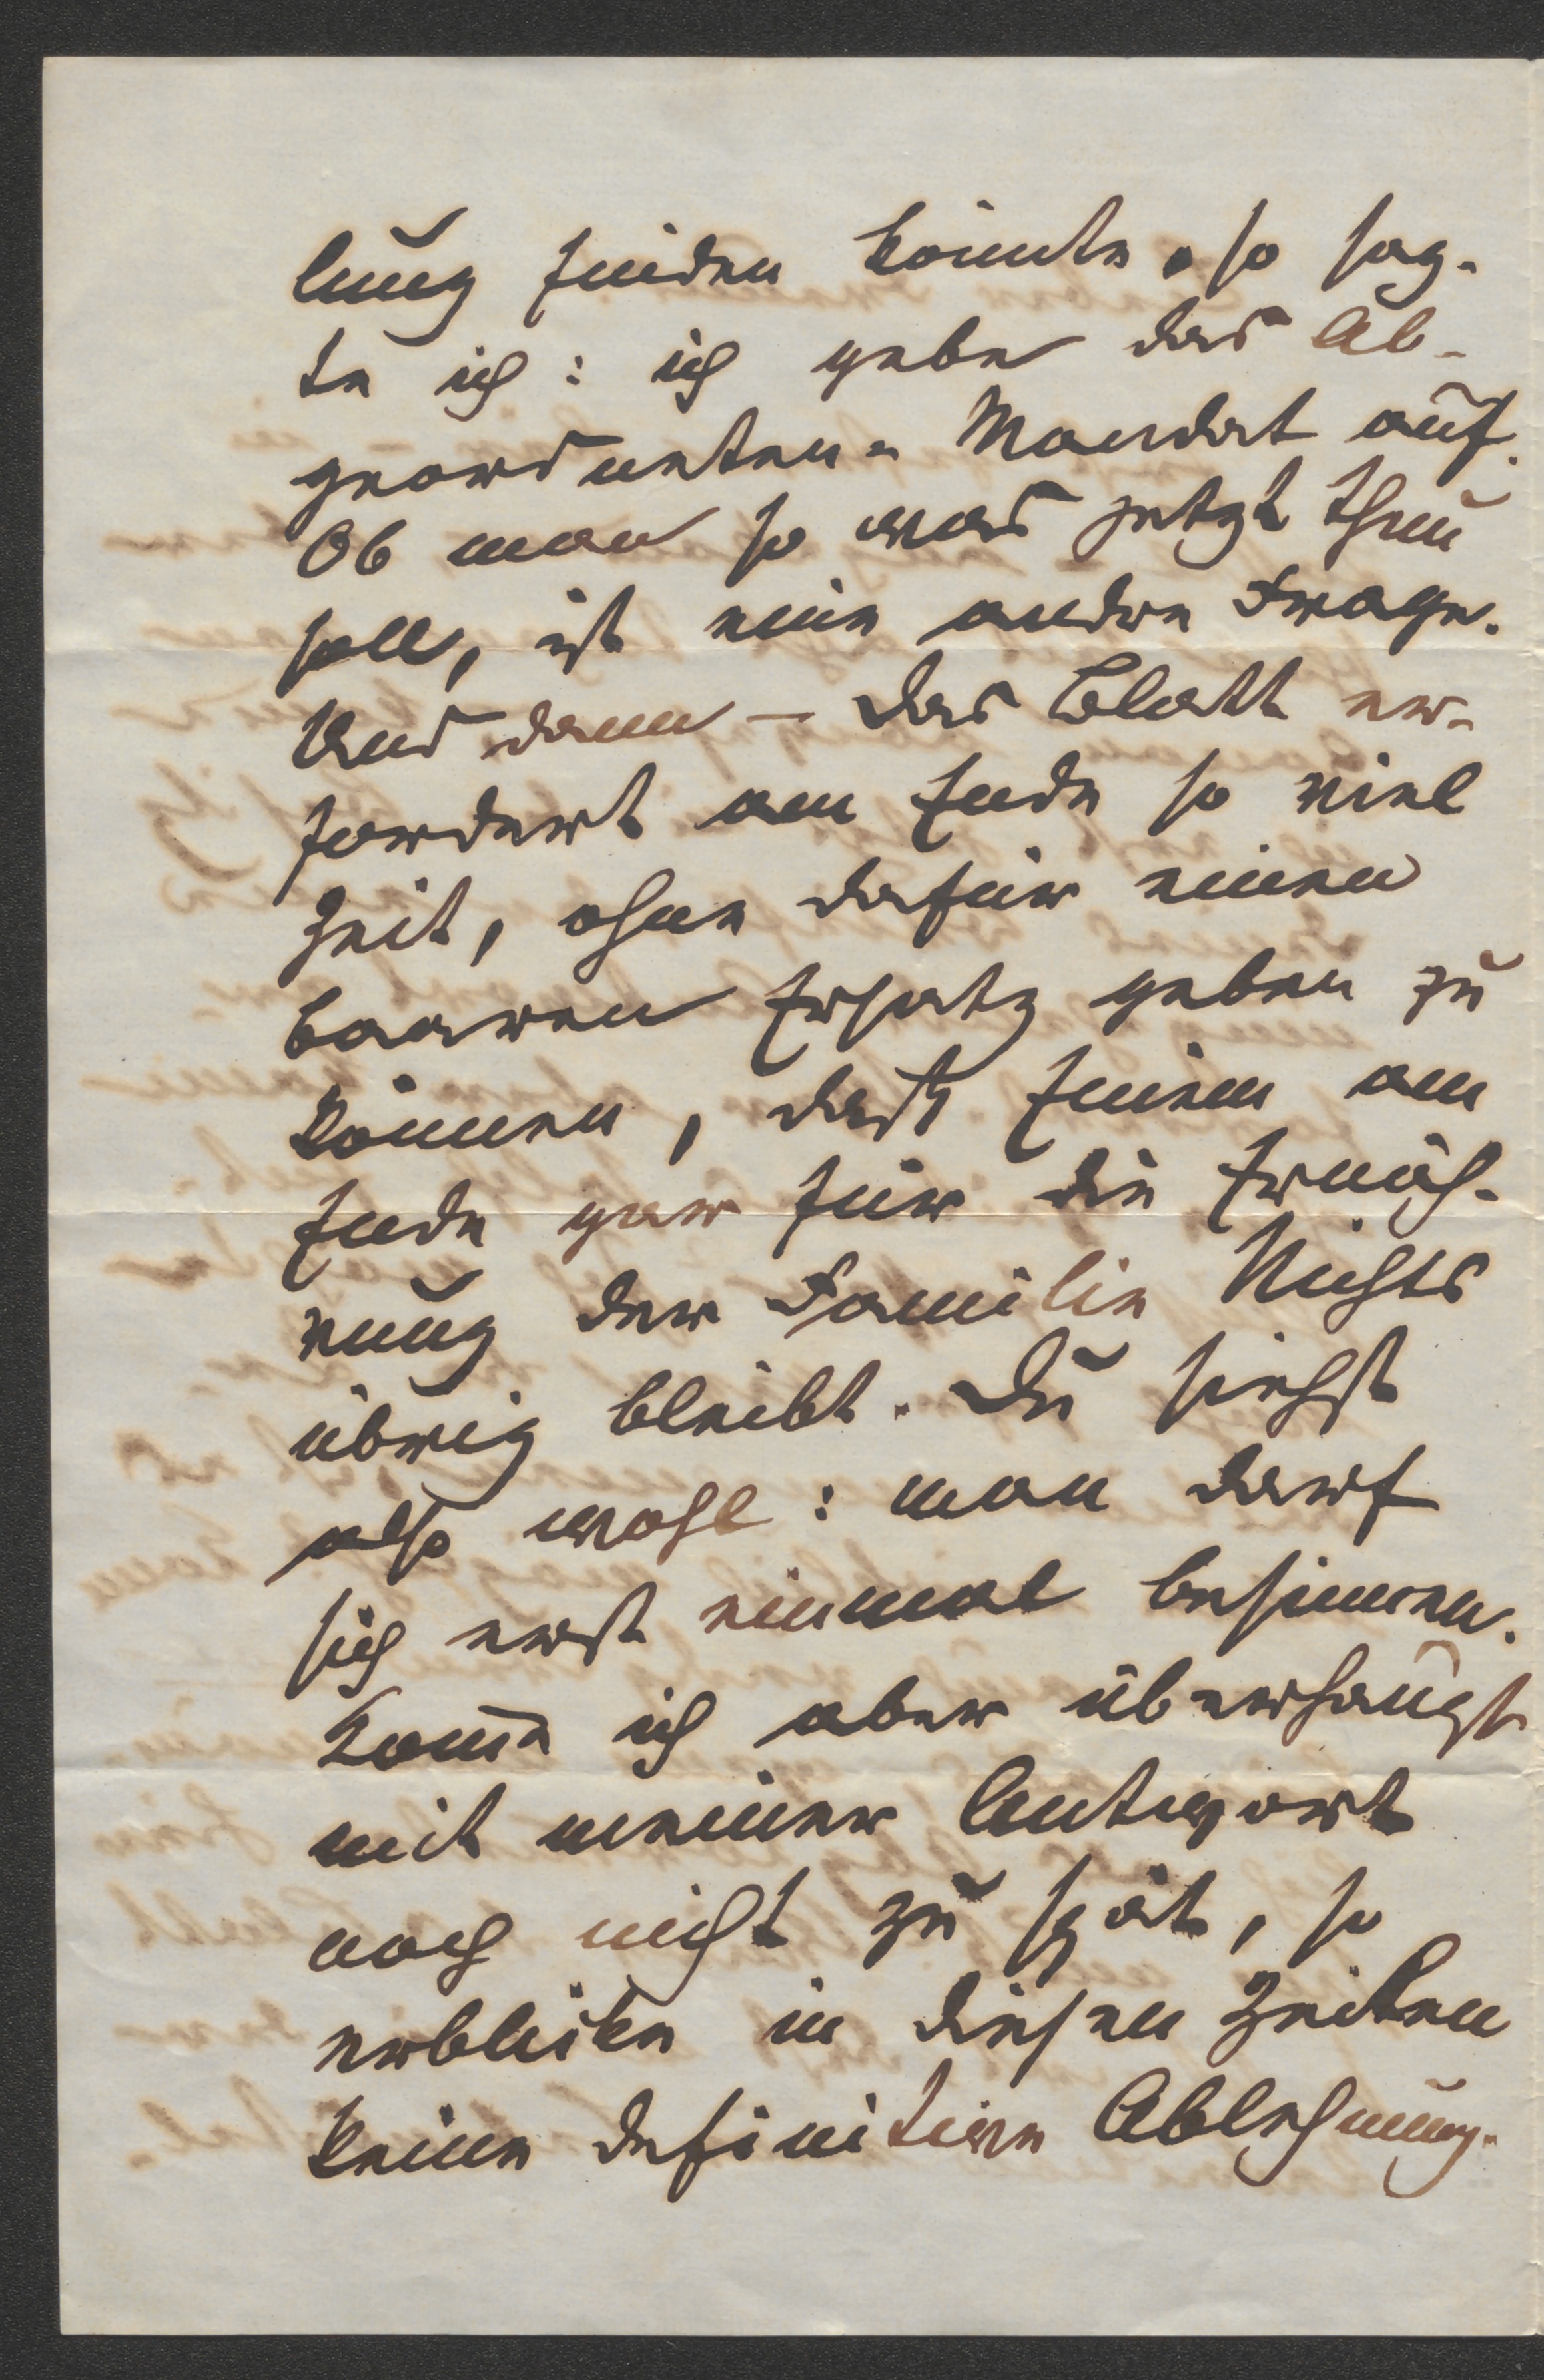 lung finden könnte, so sag-
te ich: ich gebe das Ab-
geordneten-Mandat auf.
Ob man so was jetzt thun
soll, ist eine andre Frage.
Und dann – das Blatt er-
fordert am Ende so viel
Zeit, ohne dafür einen
baaren Ersatz geben zu
können, daß Einem am
Ende gar für die Ernäh-
rung der Familie Nichts
übrig bleibt. Du siehst
also wohl: man darf
sich erst einmal besinnen.
Kom̄e ich aber überhaupt
mit meiner Antwort
noch nicht zu spät, so
erblicke in diesen Zeilen
keine definitive Ablehnung.